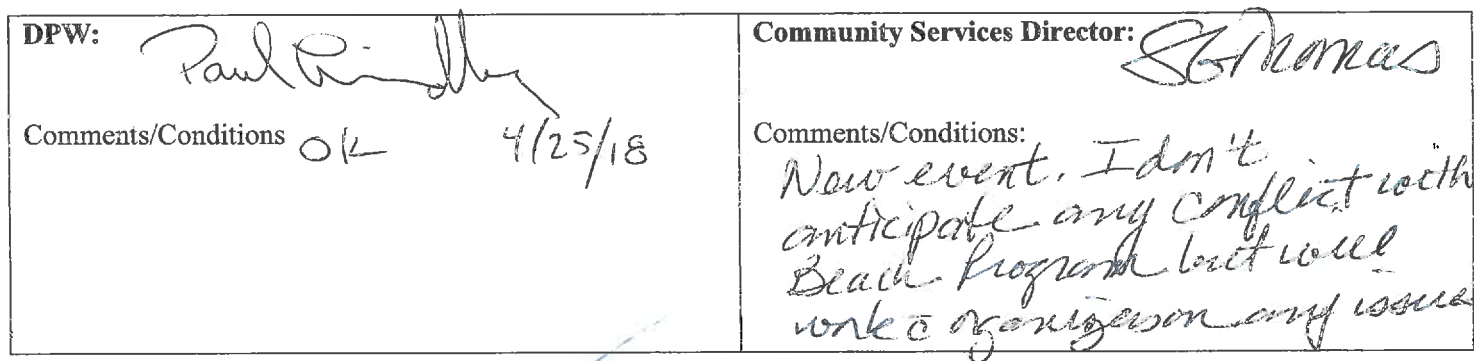 DPW: Paul
Comments/Conditions OK 4/25/18
Community Services Director: SG Thomas
Comments/Conditions:
New event. I don't
anticipate any conflict with
Beach Program but will
work c̄ organizers on any issues